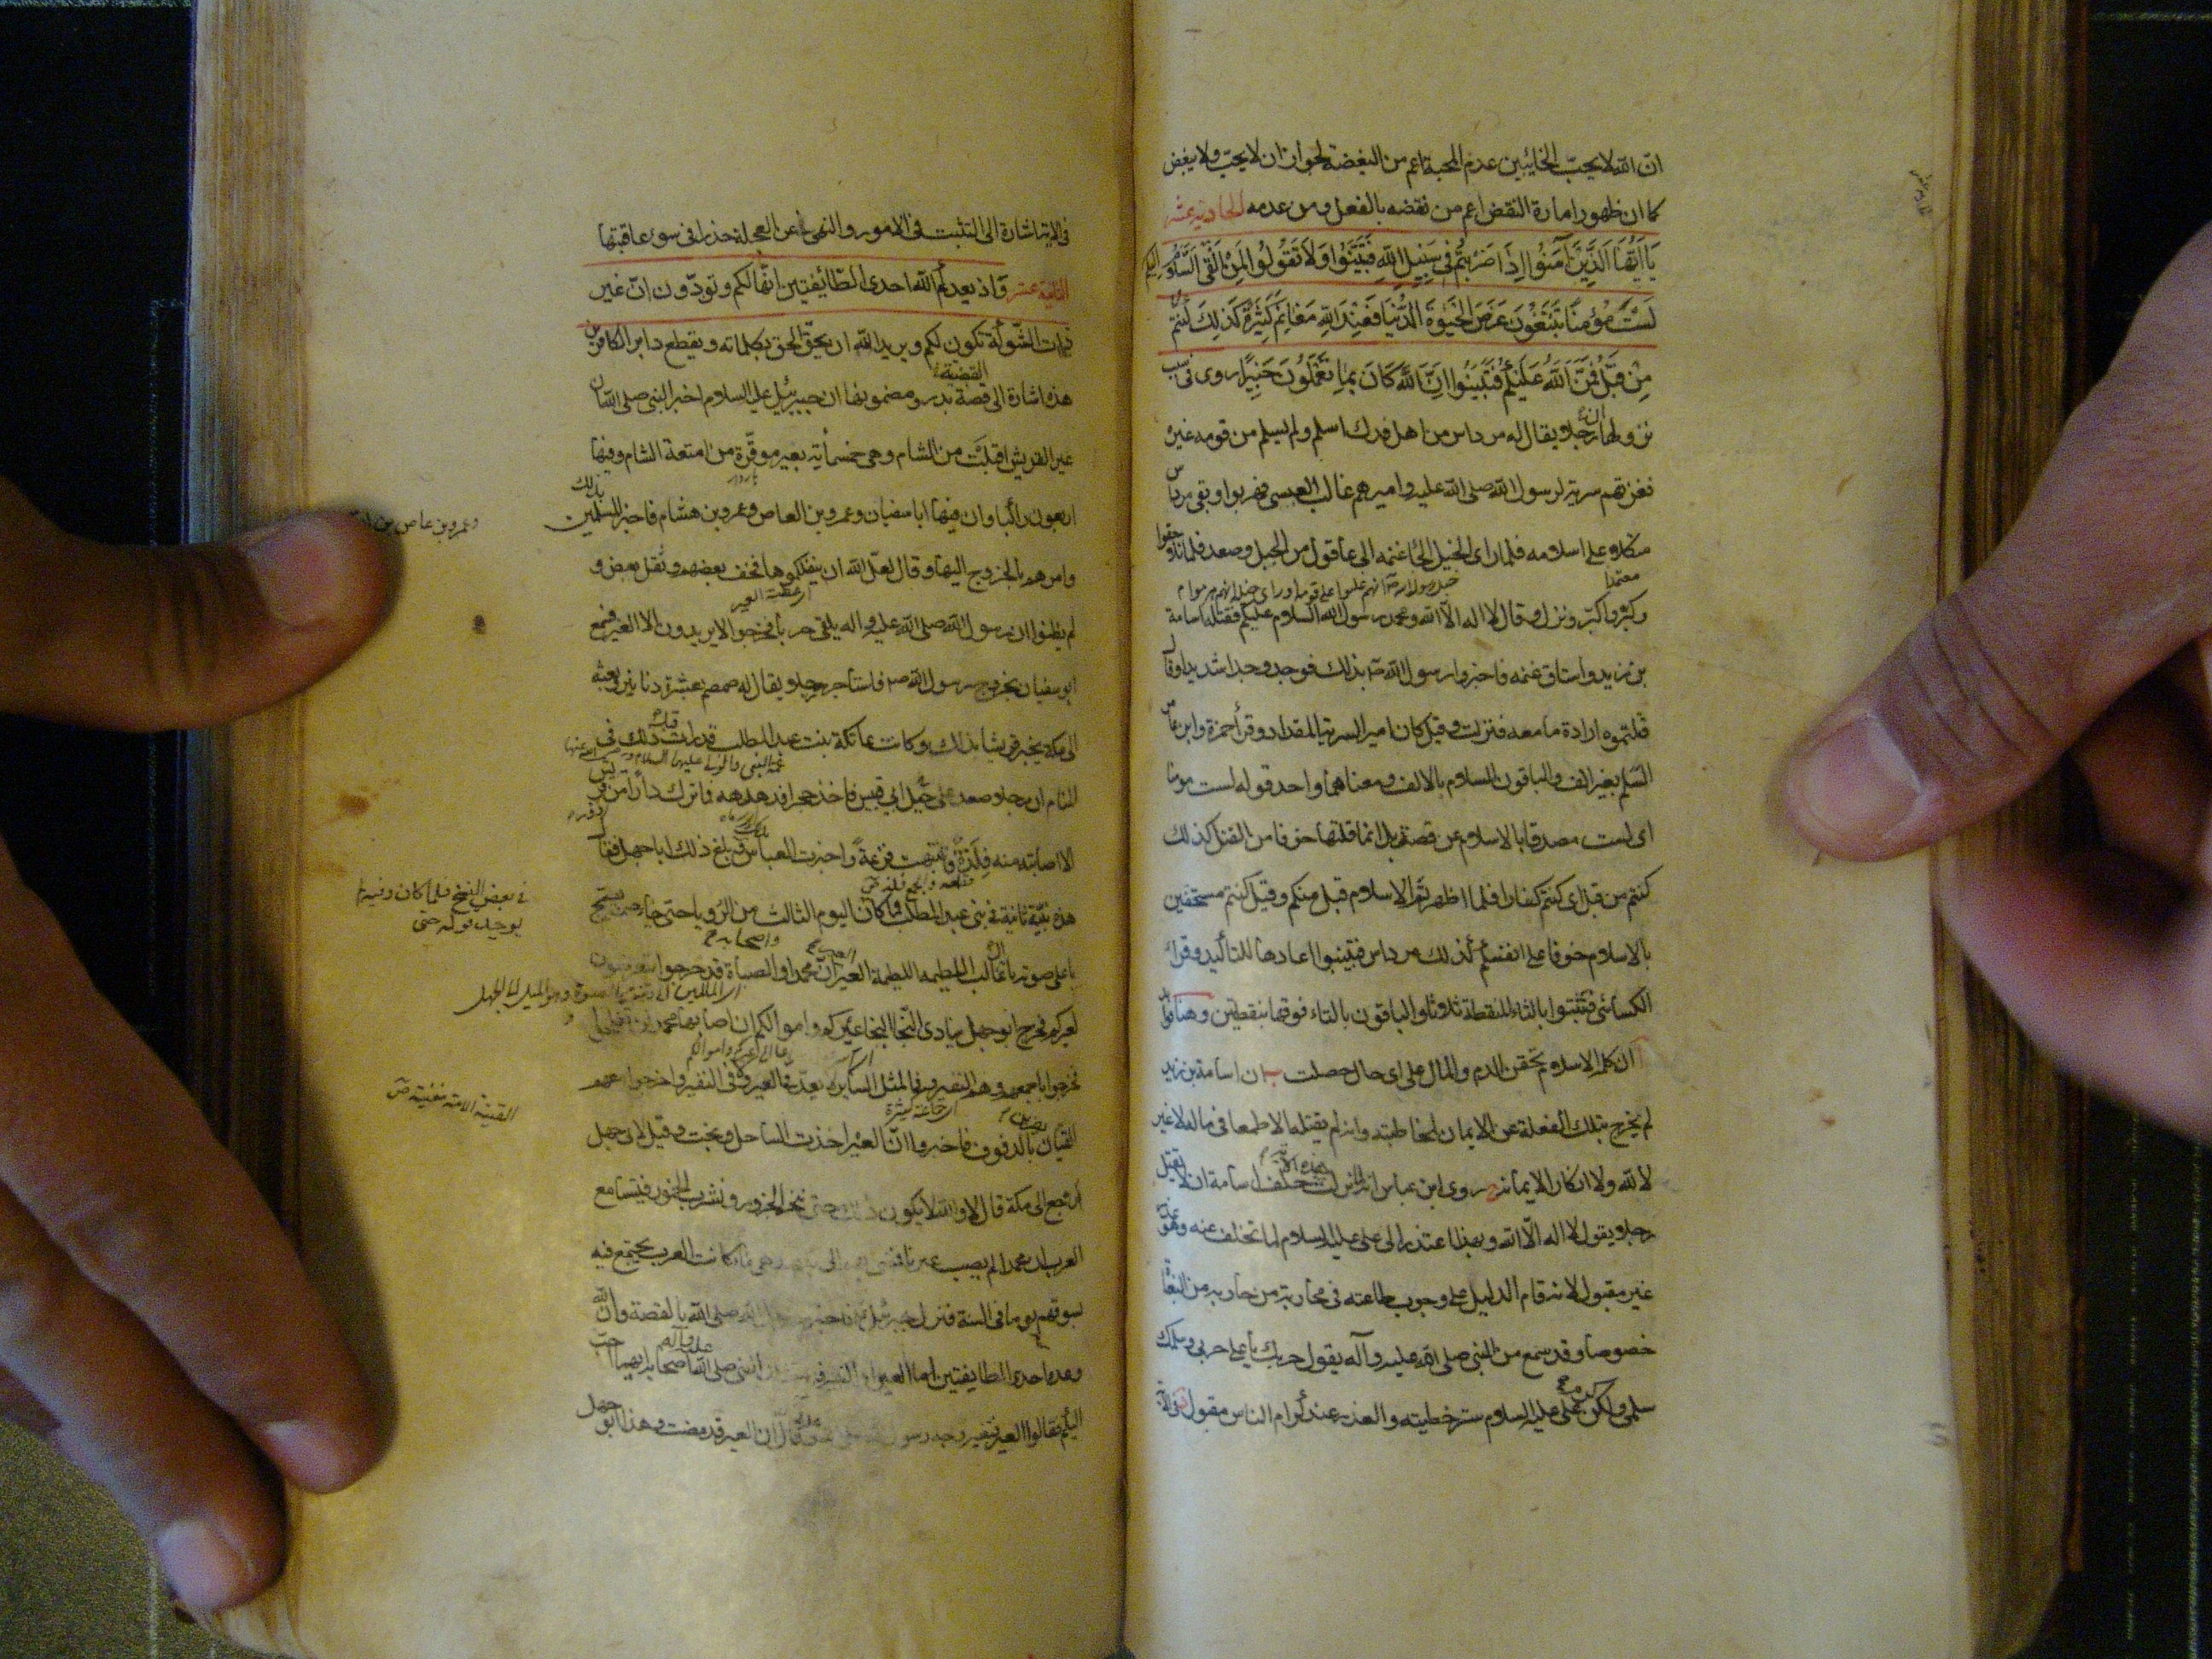 انّ الله لا يحبّ الخائنين عدم المحبة اعم من البغضة لجواز ان لا يحبّ ولا يبغض
كما ان ظهور امارة النقض اعم من نقضه بالفعل ومن عدمه الحادية عشر
يَا اَيُّهَا الَّذِينَ آمَنُوا اِذَا ضَرَبْتُمْ فِي سَبِيلِ اللهِ فَتَبَيَّنُوا وَلَا تَقُولُوا لِمَنْ اَلْقَى اِلَيْكُمُ السَّلَامَ
لَسْتَ مُؤْمِنًا تَبْتَغُونَ عَرَضَ الْحَيٰوةِ الدُّنْيَا فَعِنْدَ اللهِ مَغَانِمُ كَثِيرَةٌ كَذٰلِكَ كُنْتُمْ
مِنْ قَبْلُ فَمَنَّ اللهُ عَلَيْكُمْ فَتَبَيَّنُوا اِنَّ اللهَ كَانَ بِمَا تَعْمَلُونَ خَبِيرًا روى فى سبب
نزولها ان رجلا يقال له مرداس من اهل فدك اسلم ولم يسلم من قومه غيره
فغزتهم سرية لرسول الله صلى الله عليه واميرهم غالب فهربوا وبقى مرداس
متكلا على اسلامه فلما راى الخيل الجا غنمه الى عاقول من الجبل وصعد فلما تلاحقوا
وكبّروا كبّر ونزل وقال لا اله الاّ الله ومحمد رسول الله السلام عليكم فقتله اسامة
بن زيد واستاق غنمه فاخبروا رسول الله ص بذلك فوجد وجدا شديدا وقال
قتلتموه ارادة ما معه فنزلت وقيل كان امير السرية المقداد وقرأ حمزة وابن عامر
السلم بغير الف والباقون السلام بالالف ومعناهما واحد قوله لست مومنا
اى لست مصدقا بالاسلام عن قصد بل انما قلتها خوفا من القتل كذلك
كنتم من قبل اى كنتم كفارا فلما اظهرتم الاسلام قبل منكم وقيل كنتم مستخفين
بالاسلام خوفا على انفسكم كذلك مرداس فتبينوا اعادها للتأكيد وقرأ
الكسائى فتثبتوا بالثاء المنقطة ثلاثا والباقون بالتاء فوقها بنقطتين وهنا فوائد
ا ان كلمة الاسلام تحقن الدم والمال على اى حال حصلت ب ان اسامة بن زيد
لم يخرج بتلك الفعلة عن الايمان لمخاطبته وانه لم يقتله الا طمعا فى ماله لا غير
لا لله ولا انكار الايمانه روى ابن عباس انه لما نزلت هذه الآية حلف اسامة ان لا يقتل
رجلا يقول لا اله الاّ الله وبهذا اعتذر الى على عليه السلام لما تخلف عنه وهو عذر
غير مقبول لانه قام الدليل على وجوب طاعته فى محاربة من حاربه من البغاة
خصوصا وقد سمع من النبى صلى الله عليه وآله يقول حربك يا على حربى وسلمك
سلمى ولكن كرم على عليه السلام ستر خطيئته والعذر عند كرام الناس مقبول
فى الاية اشارة الى التثبت فى الامور والنهى عن العجلة حذرا فى سوء عاقبتها
الثانية عشر وَاذ يعدكُمُ الله احدى الطائفتين انّها لكم وتودّون انّ غير
ذات الشّوكة تكون لكم ويريد الله ان يحقّ الحق بكلماته ويقطع دابر الكافرين
هذه اشارة الى قصة بدر ومضمونها ان جبرئيل عليه السلام اخبر النبى صلى الله ان
القضية
عير القريش اقبلت من الشام وهى خمسمأية بعير موقّرة من امتعة الشام وفيها
اربعون راكبا وان فيها ابا سفيان وعمرو بن العاص وعمرو بن هشام فاخبر المسلمين بذلك
وعمرو بن عاص بن
وامرهم بالخروج اليها وقال لعلّ الله ان ينفلكموها فخف بعضهم وثقل بعض و
لم يظنوا ان رسول الله صلى الله عليه واله يلقى حربا فخرجوا لا يريدون الا العير فسمع
ابو سفيان بخروج رسول الله ص فاستاجر رجلا يقال له ضمضم بعشرة دنانير بعثه
الى مكة يخبر قريشا بذلك وكانت عاتكة بنت عبد المطلب قد رات قبل ذلك فى
المنام ان رجلا صعد على جبل ابى قبيس فاخذ حجرا فدهدهه فما ترك دارا من قريش
الا اصابته منه فلذة وانتبهت فزعة واخبرت العباس فبلغ ذلك ابا جهل فقال
هذه نبيّة ثانية فى بنى عبد المطلب فما كان اليوم الثالث من الرويا حتى جاء ضمضم
فى بعض النسخ فلما كان وفيه لا
يوجد قوله حتى
باعلى صوته يا آل غالب اللطيمة اللطيمة العير انّ محمدا والصباة قد خرجوا يتعرضون
لعيركم فخرج ابو جهل ينادى النّجا النجا عيركم واموالكم ان اصابها محمد
فخرجوا باجمعهم وهم النفير وفى المثل السائر لا يعد فى العير ولا فى النفير واخرجوا معهم
القيان بالدفوف فاخبروا انّ العير اخذت الساحل ونجت وقيل لابى جهل
القينة الامة مغنية ص
ارجع الى مكة قال لا والله لا يكون ذلك حتى ننحر الجزور ونشرب الخمور فيتسامع
العرب ان محمدا لم يصب عيرنا كانت العرب يجتمع فيه
لسوقهم يوما فى السنة فنزل جبرئيل صلى الله بالقصة وان الله
وعده احدى الطايفتين اما العير او النفير النبى صلى الله عليه وآله اصحابه
اليكم فقالوا العير فتغير وجه رسول الله وقال ان العير قد مضت وهذا ابو جهل